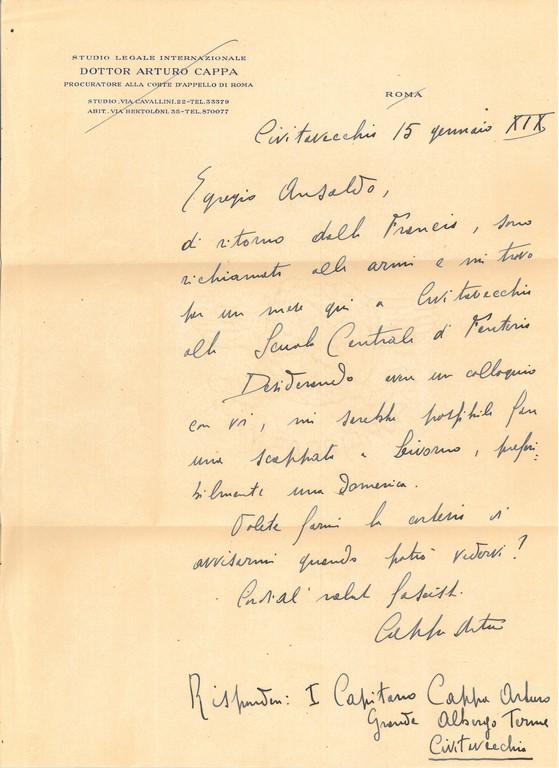 STUDIO LEGALE INTERNAZIONALE
DOTTOR ARTURO CAPPA
PROCURATORE ALLA CORTE D'APPELLO DI ROMA
STUDIO. VIA CAVALLINI. 22 - TEL. 33379
ABIT. VIA BERTOLONI. 35 - TEL. 870077
ROMA
Civitavecchia 15 gennaio XIX
Egregio Ansaldo,
di ritorno dalla Francia, sono
richiamato alle armi e mi trovo
per un mese qui a Civitavecchia
alla Scuola Centrale di Fanteria
Desiderando avere un colloquio
con voi, mi sarebbe possibile fare
una scappata a Livorno, preferi-
bilmente una Domenica.
Volete farmi la cortesia di
avvisarmi quando potrò vedervi?
Cordiali saluti fascisti.
Cappa Arturo
Rispondere: I Capitano Cappa Arturo
Grande Albergo Terme
Civitavecchia